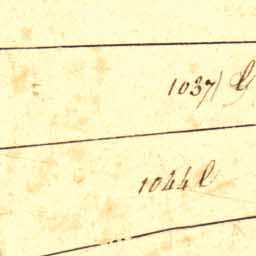 1037) G
1044 l